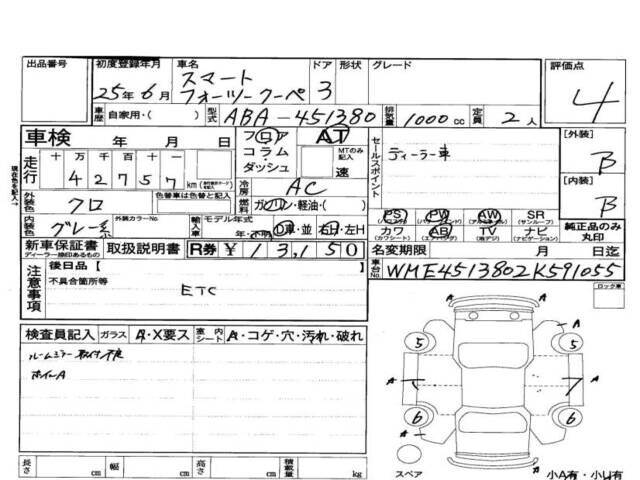 出品番号
初度登録年月
25年6月
車名
スマート
フォーツークーペ
ドア
3
形状
グレード
評価点
4
車歴
自家用・( )
型式
ABA-451380
排気量
1000cc
定員
2人
車検 年 月 日
走行
十 万 千 百 十 一
4 2 7 5 7
km
フロア
コラム・
ダッシュ
AT
MTのみ記入
速
冷房
AC
セールスポイント
ディーラー車
[外装]
B
[内装]
B
現在色を記入→
外装色
クロ
色替車は元色
色替車と色替
燃料
ガソリン・軽油・( )
内装色
グレー系
外装カラーNo.
輸入車
モデル年式
年・不明
D車・並
右H・左H
PS
(パワステ)
PW
(パワーウィンドウ)
AW
(アルミホイール)
SR
(サンルーフ)
カワ
(カワシート)
AB
(エアバッグ)
TV
(地デジ)
ナビ
(ナビゲーション)
純正品のみ
丸印
新車保証書
ディーラー捺印あるもの
取扱説明書
R券 ¥13,150
名変期限 月 日迄
車台No.
WME4513802K591055
注意事項
後日品【 】
不具合箇所等
ETC
ロック車
検査員記入
ガラス
A・X要ス
室内シート
A・コゲ・穴・汚れ・破れ
ルームミラー取付不良
ホイールA
A
5
5
A
A
A
6
6
A
スペア
小A有・小U有
長さ cm
幅 cm
高さ cm
積載量 kg